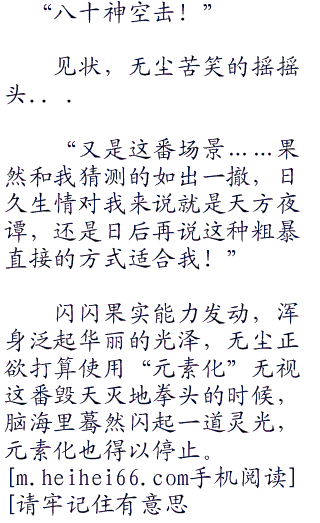 “八十神空击！”
见状，无尘苦笑的摇摇
头．．．
“又是这番场景……果
然和我猜测的如出一撤，日
久生情对我来说就是天方夜
谭，还是日后再说这种粗暴
直接的方式适合我！”
闪闪果实能力发动，浑
身泛起华丽的光泽，无尘正
欲打算使用“元素化”无视
这番毁天灭地拳头的时候，
脑海里蓦然闪起一道灵光，
元素化也得以停止。
[m.heihei66.com手机阅读]
[请牢记住有意思